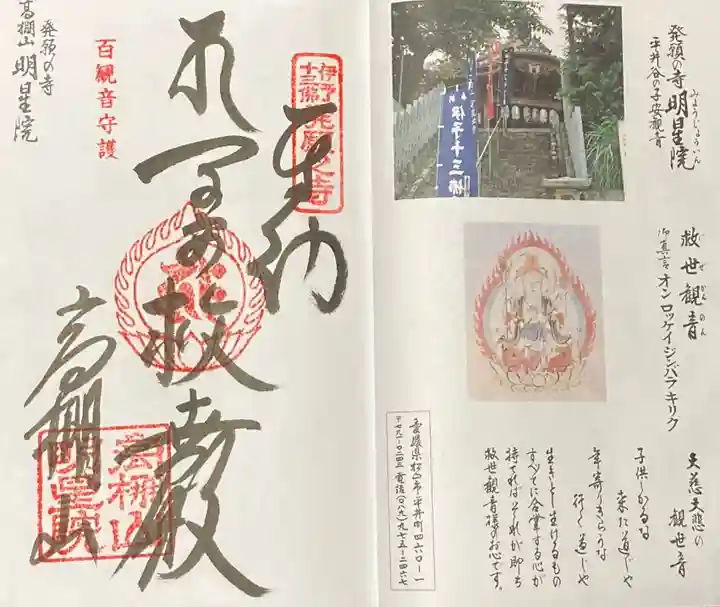 発願の寺 明星院
みょうじょういん
平井谷の子安観音
伊予十三佛
救世観音
ぐぜかんのん
御真言 オン ロッケイジンバラ キリク
大慈大悲の
観世音
子供しかるな
来た道じゃ
年寄りきらうな
行く道じゃ
生きとし生けるもの
すべてに合掌する心が
持てればそれが即ち
救世観音様のお心です。
愛媛県松山市平井町四六〇一一
〒七九一-〇二四三 電話(〇八九)九七五-二四六七
奉納
伊予十三佛
発願之寺
救世殿
高棚山
高棚山
明星院
百観音守護
発願の寺
高棚山 明星院